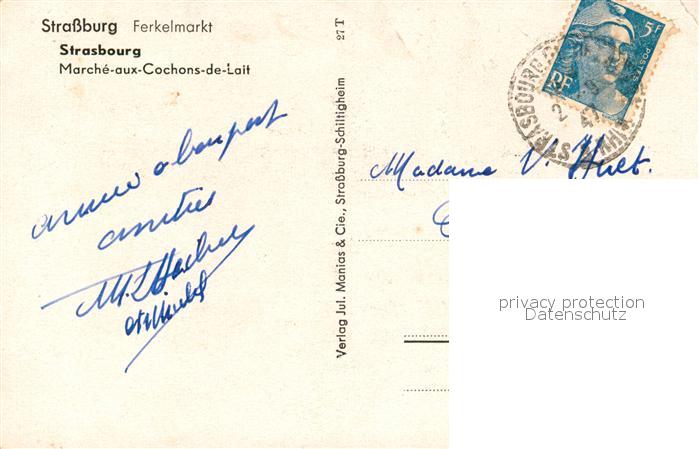 Straßburg Ferkelmarkt
Strasbourg
Marché-aux-Cochons-de-Lait
Verlag Jul. Manias & Cie., Straßburg-Schiltigheim
27 T
5F
POSTES
RF
STRASBOURG
arrivée à bon port
amitiés
Madame V. Huet.
privacy protection
Datenschutz